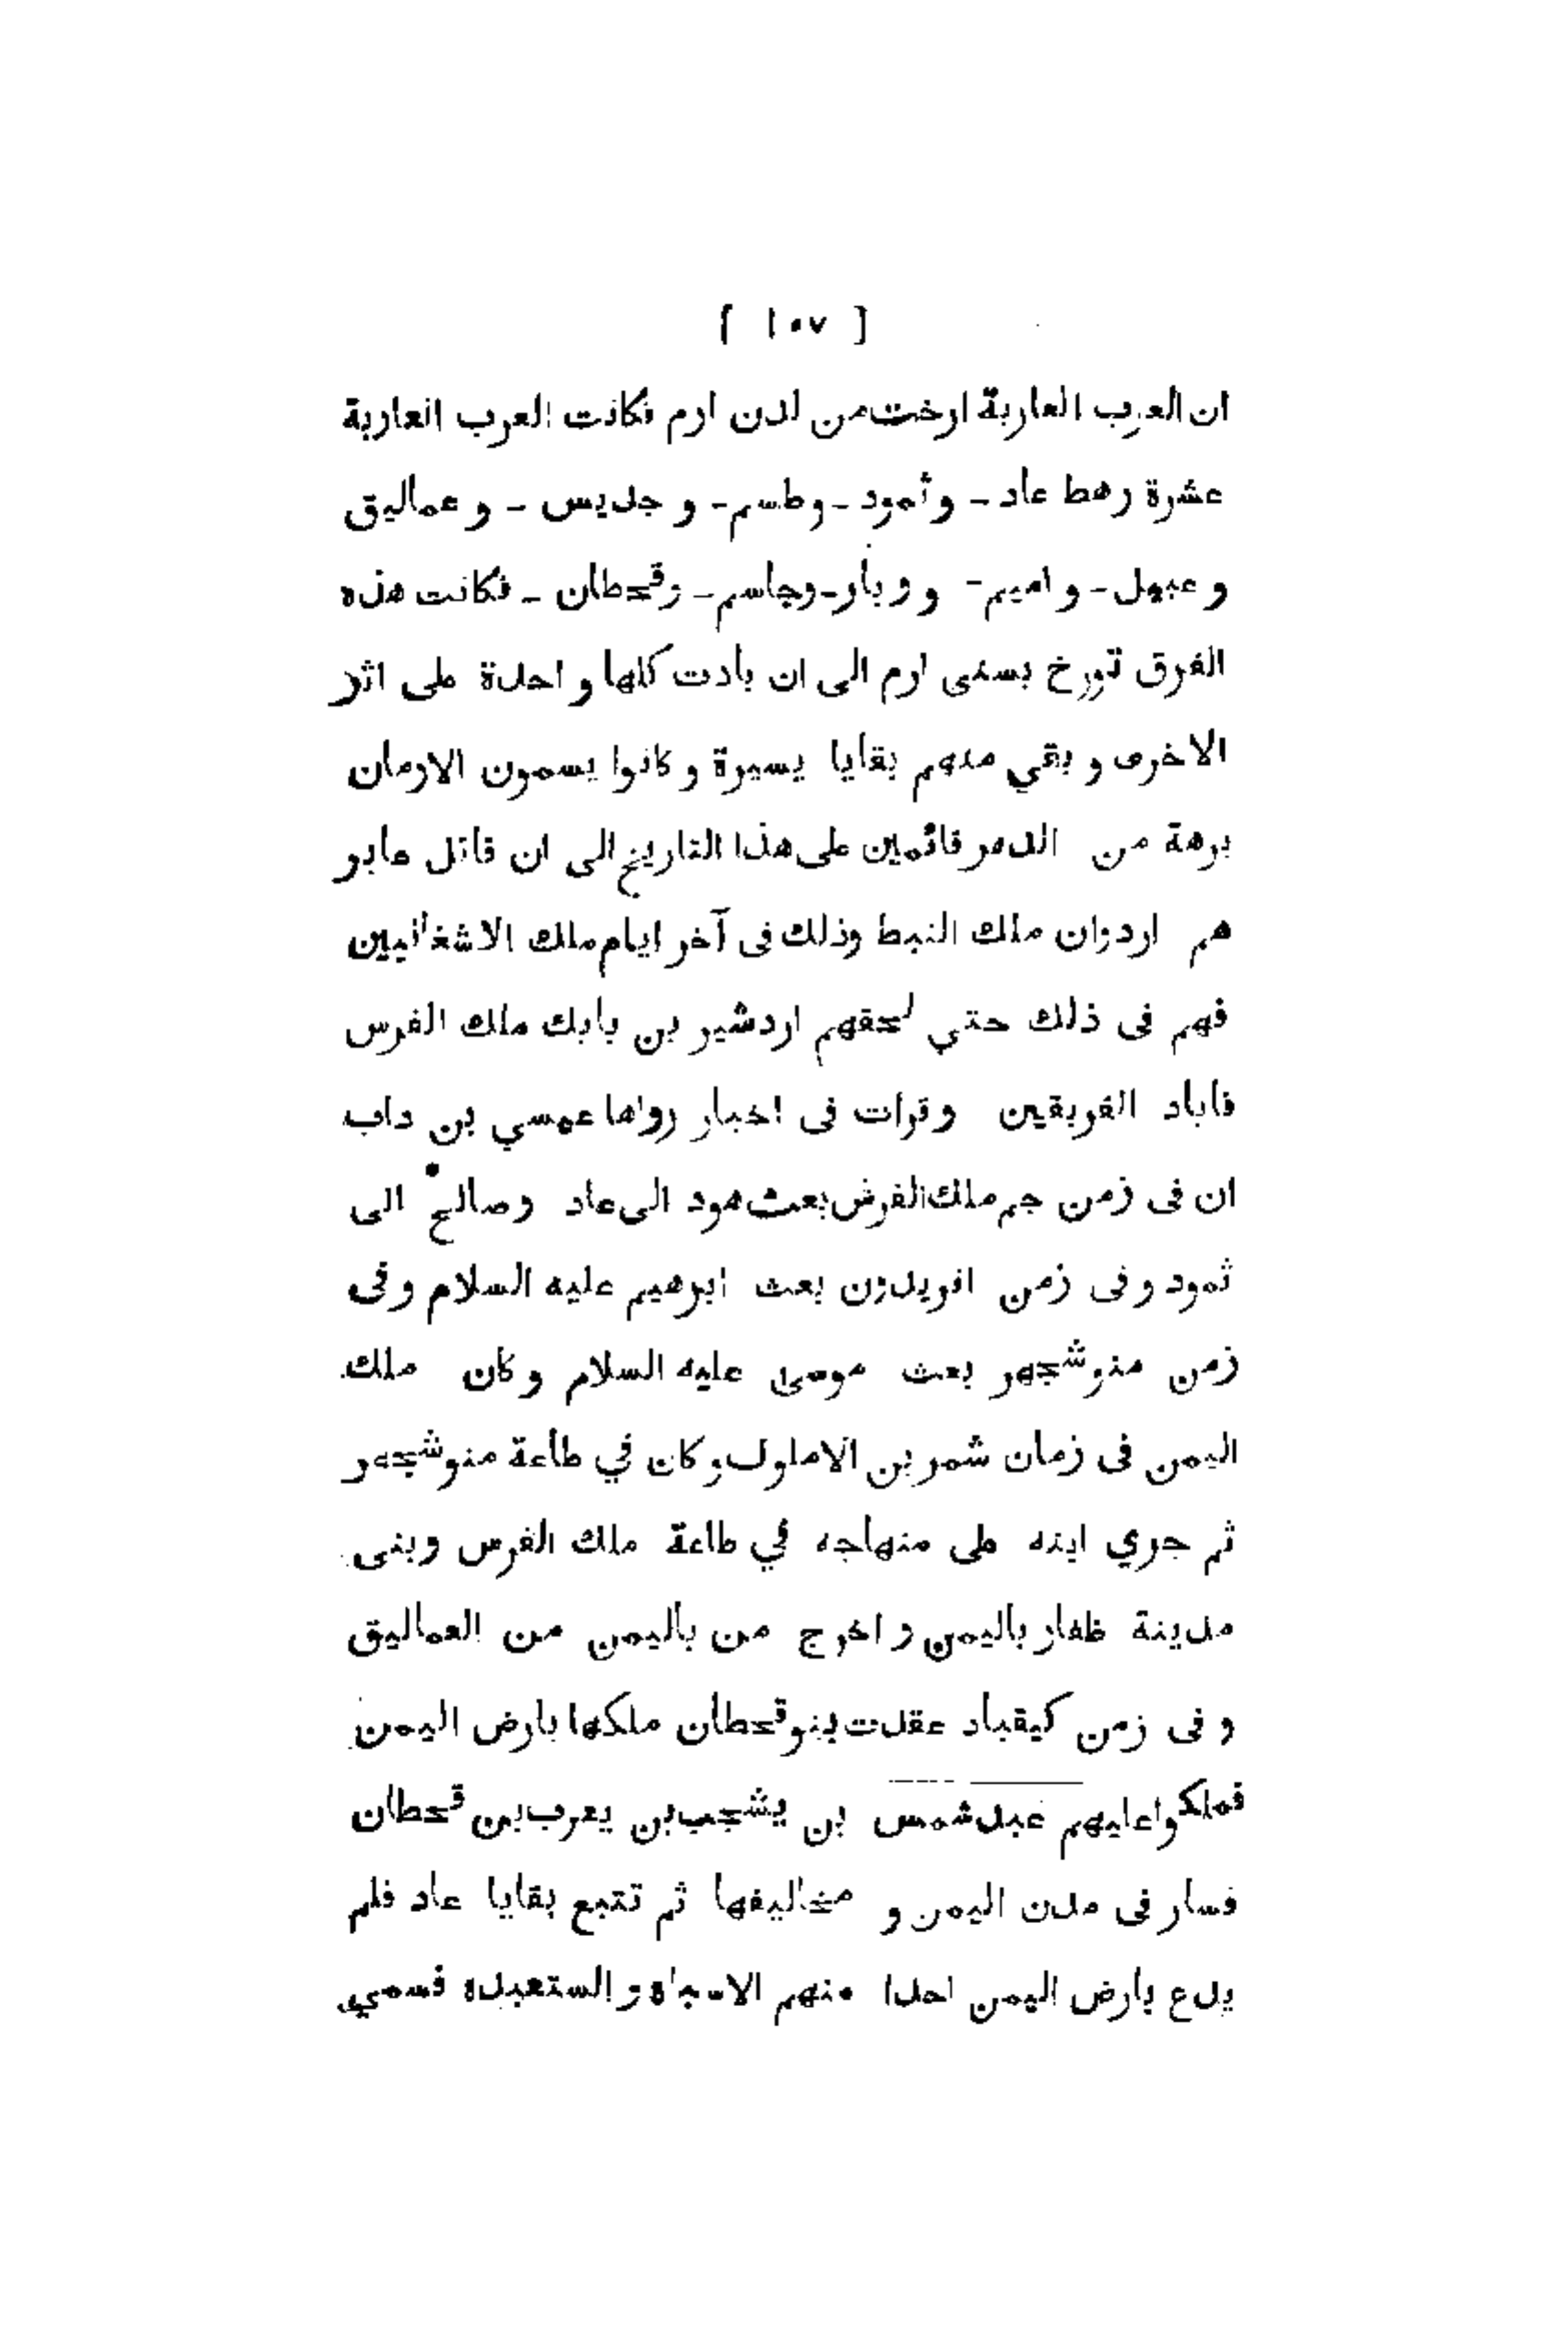 [ ١٠٧ ]
ان العرب العاربة ارخت من لدن ارم فكانت العرب العاربة
عشرة رهط عاد - وثمود - وطسم - و جديس - و عماليق
و عبهل - و اميم - و وبار - وجاسم - وقحطان - فكانت هذه
الفرق تورخ بسنى ارم الى ان بادت كلها واحدة على اثر
الاخرى و بقي منهم بقايا يسيرة و كانوا يسمون الارمان
برهة من الدهر قائمين على هذا التاريخ الى ان قاتل عابر
هم اردوان ملك النبط وذلك فى آخر ايام ملك الاشغانيين
فهم فى ذلك حتي لحقهم اردشير بن بابك ملك الفرس
فاباد الفريقين وقرات فى اخبار رواها عيسي بن داب
ان فى زمن جم ملك الفرس بعث هود الى عاد وصالح الى
ثمود وفى زمن افريدون بعث ابرهيم عليه السلام وفى
زمن منوشجهر بعث موسى عليه السلام وكان ملك
اليمن فى زمان شمر بن الاملوك وكان في طاعة منوشجهر
ثم جري ابنه على منهاجه في طاعة ملك الفرس وبنى
مدينة ظفار باليمن و اخرج من باليمن من العماليق
و فى زمن كيقباد عقدت بنو قحطان ملكها بارض اليمن
فملكوا عليهم عبد شمس بن يشجب بن يعرب بن قحطان
فسار فى مدن اليمن و مخاليفها ثم تتبع بقايا عاد فلم
يدع بارض اليمن احدا منهم الاسباه و الستعبده فسمي